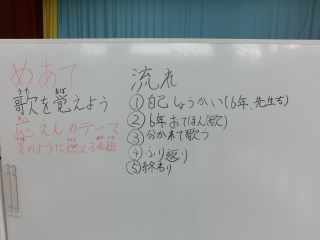 めあて
歌を覚えよう
応えんのテーマ
炎のように燃える赤組
流れ
①自己しょうかい(6年、先生方)
②6年おてほん(歌)
③分かれて歌う
④ふり返り
⑤終わり